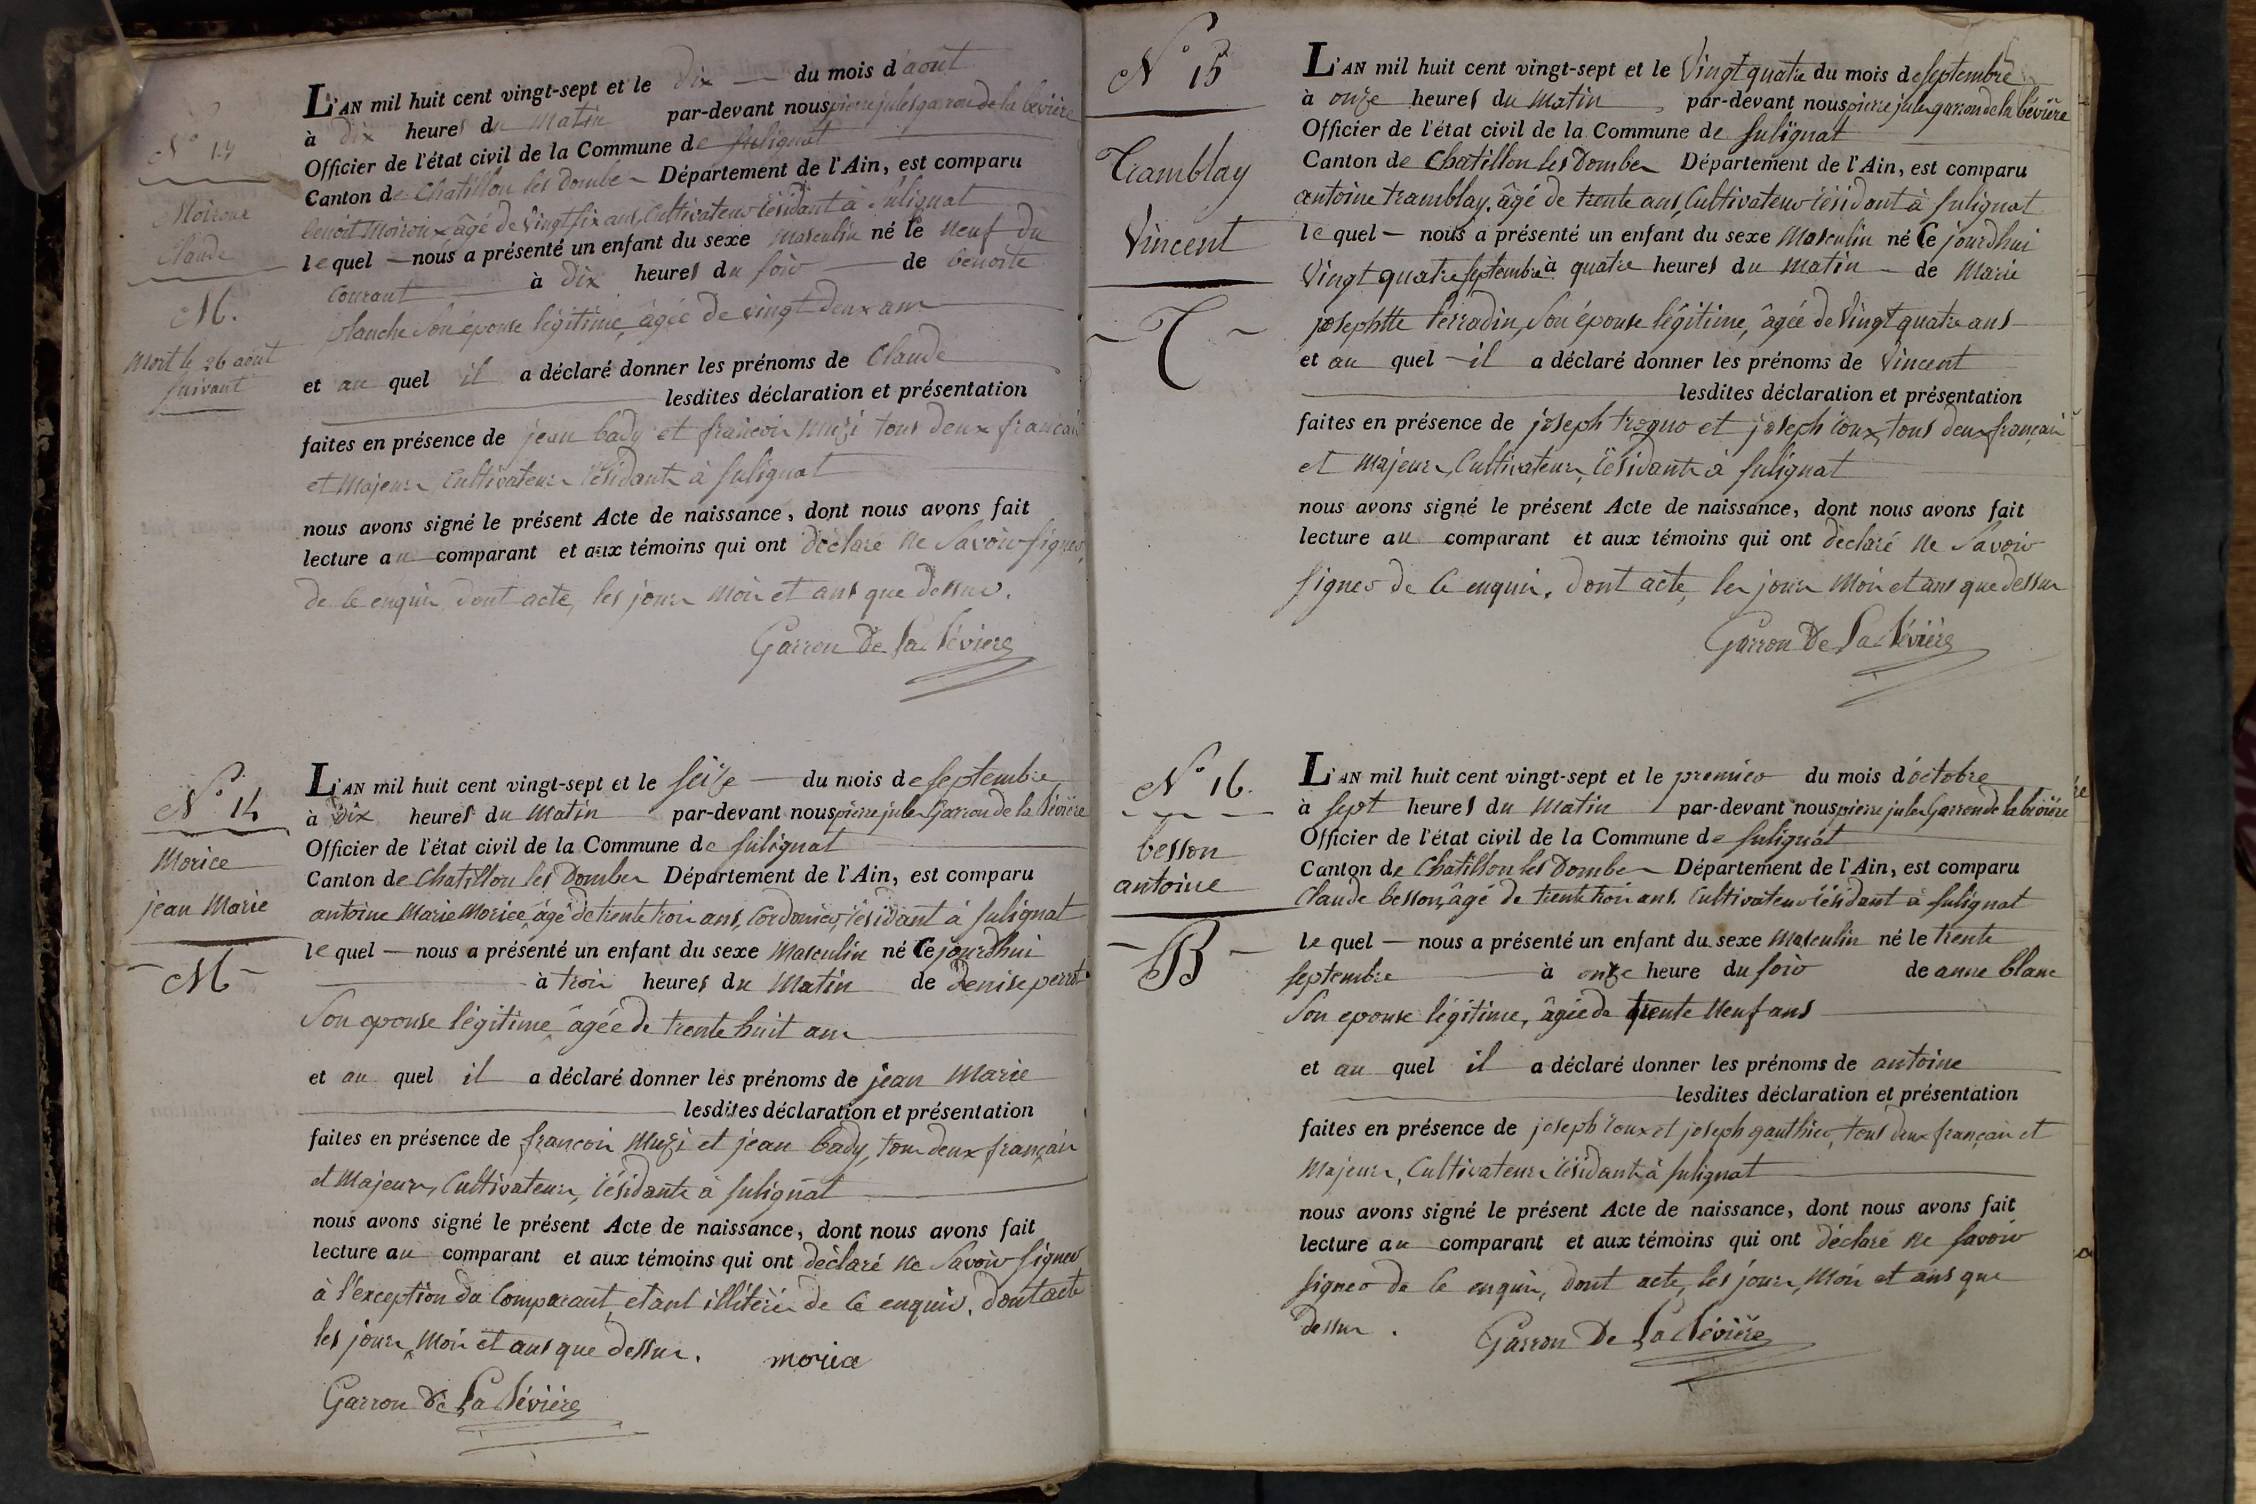 N° 13
Moiroux
Claude
M.
Mort le 26 août
suivant
L'AN mil huit cent vingt-sept et le dix — du mois d'août
à dix heures du matin par-devant nous pierre jules garron de la bévière
Officier de l'état civil de la Commune de sulignat
Canton de Chatillon les Dombes Département de l'Ain, est comparu
benoit Moiroux âgé de vingt six ans, Cultivateur résidant à Sulignat
lequel — nous a présenté un enfant du sexe masculin né le neuf du
courant à dix heures du soir — de benoite
blanche son épouse légitime, âgée de vingt deux ans
et au quel il a déclaré donner les prénoms de Claude
lesdites déclaration et présentation
faites en présence de jean bady et françois Muzi tous deux français
et Majeurs, Cultivateurs résidants à Sulignat
nous avons signé le présent Acte de naissance, dont nous avons fait
lecture au comparant et aux témoins qui ont déclaré ne savoir signer
de ce enquis, dont acte, les jour mois et ans que dessus.
Garron De La Bévière
N° 14
Morice
jean Marie
M
L'AN mil huit cent vingt-sept et le seize — du mois de septembre
à dix heures du matin par-devant nous pierre jules Garron de la Bévière
Officier de l'état civil de la Commune de sulignat
Canton de Chatillon les Dombes Département de l'Ain, est comparu
antoine Marie Morice, âgé de trente trois ans, Cordonier, résidant à sulignat
lequel — nous a présenté un enfant du sexe masculin né Ce jourdhui
à trois heures du matin de denise perret
Son epouse légitime, âgée de trente huit ans
et au quel il a déclaré donner les prénoms de jean Marie
lesdites déclaration et présentation
faites en présence de françois Muzi et jean bady, tous deux français
et Majeurs, Cultivateurs, résidants à sulignat
nous avons signé le présent Acte de naissance, dont nous avons fait
lecture au comparant et aux témoins qui ont déclaré ne Savoir signer
à l'exception du Comparant, etant illiterés de ce enquis, dont acte
les jour, Mois et ans que dessus. morice
Garron De La Bévière
N° 15
Tramblay
Vincent
T
L'AN mil huit cent vingt-sept et le Vingt quatre du mois de septembre
à onze heures du matin, par-devant nous pierre jules garron de la bévière
Officier de l'état civil de la Commune de sulignat
Canton de Chatillon les Dombes Département de l'Ain, est comparu
antoine tramblay, âgé de trente ans, Cultivateur résidant à sulignat
lequel — nous a présenté un enfant du sexe Masculin né Ce jourdhui
Vingt quatre septembre à quatre heures du matin — de Marie
josephtte Perradin, son épouse légitime, âgée de Vingt quatre ans
et au quel — il a déclaré donner les prénoms de Vincent
lesdites déclaration et présentation
faites en présence de joseph et joseph roux, tous deux français
et Majeurs, Cultivateurs, résidants à sulignat
nous avons signé le présent Acte de naissance, dont nous avons fait
lecture au comparant et aux témoins qui ont déclaré ne savoir
signer de ce enquis, dont acte, les jour Mois et ans que dessus
Garron De La Bévière
N° 16.
besson
antoine
B
L'AN mil huit cent vingt-sept et le premier du mois d'octobre
à sept heures du matin par-devant nous pierre jules Garron de la bévière
Officier de l'état civil de la Commune de sulignat
Canton de Chatillon les Dombes Département de l'Ain, est comparu
Claude besson, âgé de trente trois ans, Cultivateur résidant à sulignat
lequel — nous a présenté un enfant du sexe masculin né le trente
septembre à onze heure du soir de anne blanc
Son epouse légitime, âgée de trente neuf ans
et au quel il a déclaré donner les prénoms de antoine
lesdites déclaration et présentation
faites en présence de joseph roux et joseph gauthier, tous deux français et
Majeurs, Cultivateurs résidants à sulignat
nous avons signé le présent Acte de naissance, dont nous avons fait
lecture au comparant et aux témoins qui ont déclaré ne savoir
signer de ce enquis, dont acte, les jours, Mois et ans que
dessus. Garron De La Bévière